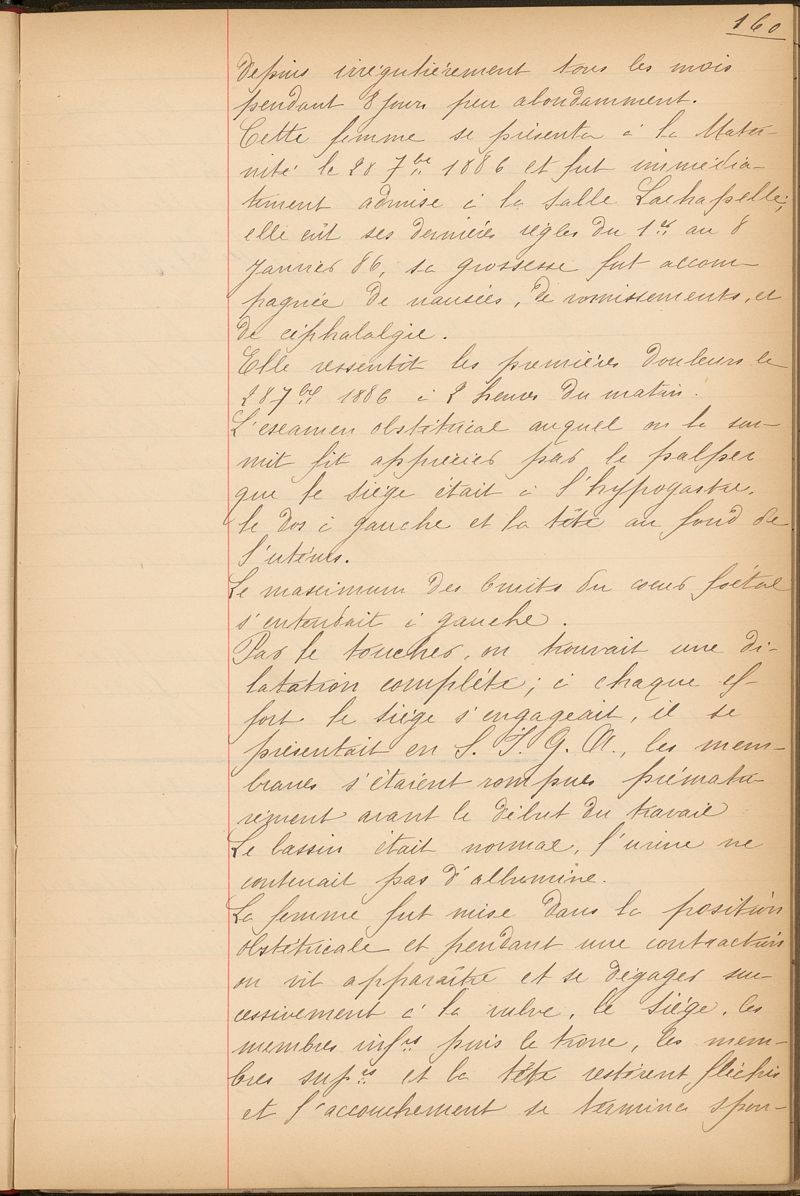 160
depuis irrégulièrement tous les mois
pendant 8 jours peu abondamment.
Cette femme se présenta à la Mater-
nité le 28 7bre 1886 et fut immédia-
tement admise à la salle Lachapelle;
elle eût ses dernières règles du 1er au 8
Janvier 86, sa grossesse fut accom-
pagnée de nausées, de vomissements, et
de céphalalgie.
Elle ressentit les premières douleurs le
28 7bre 1886 à 2 heures du matin.
L'examen obstétrical auquel on la sou-
mit fit apprécier par le palper
que le siège était à l'hypogastre,
le dos à gauche et la tête au fond de
l'utérus.
Le maximum des bruits du coeur foetal
s'entendait à gauche.
Par le toucher, on trouvait une di-
latation complète; à chaque ef-
fort le siège s'engageait, il se
présentait en S. I. G. A., les mem-
branes s'étaient rompues prématu-
rément avant le début du travail
Le bassin était normal, l'urine ne
contenait pas d'albumine.
La femme fut mise dans la position
obstétricale et pendant une contraction
on vit apparaître et se dégager suc-
cessivement à la vulve, le siège, les
membres infrs puis le tronc, les mem-
bres suprs et la tête restèrent fléchis
et l'accouchement se termina spon-